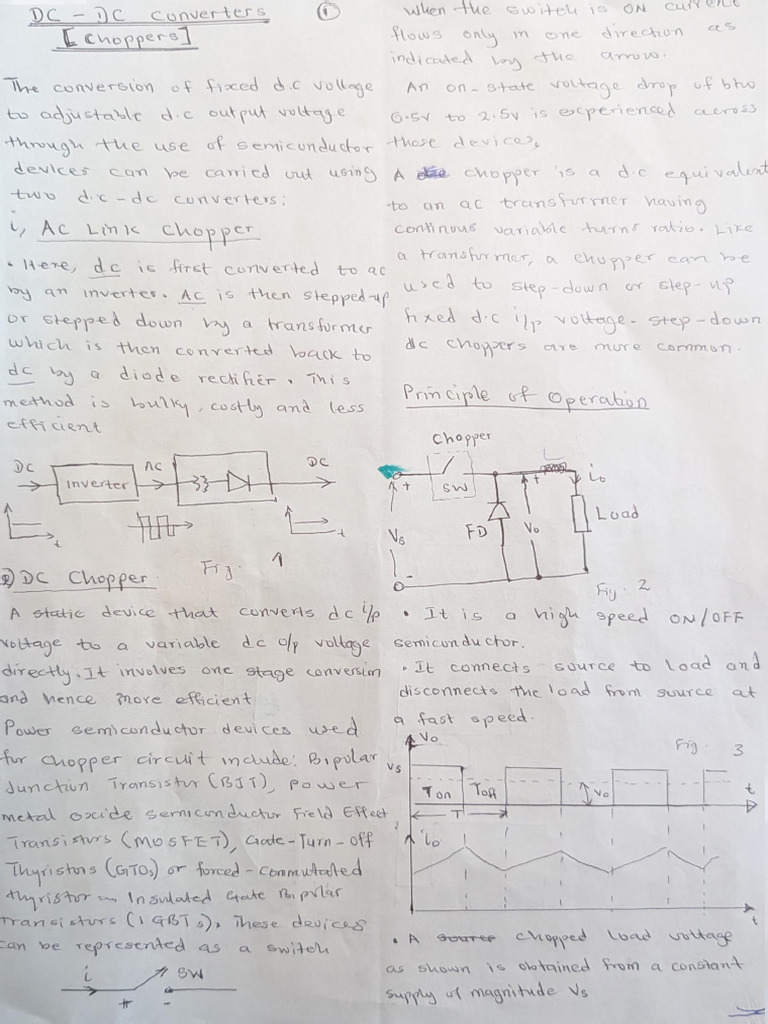 DC - DC Converters
[Choppers]
①
The conversion of fixed d.c voltage
to adjustable d.c output voltage
through the use of semiconductor
devices can be carried out using
two d.c - dc converters:
i, AC Link Chopper
• Here, dc is first converted to ac
by an inverter. AC is then stepped-up
or stepped down by a transformer
which is then converted back to
dc by a diode rectifier. This
method is bulky, costly and less
efficient
DC AC DC
inverter
t t
Fig. 1
2) DC Chopper
A static device that converts dc i/p
voltage to a variable dc o/p voltage
directly. It involves one stage conversion
and hence more efficient
Power semiconductor devices used
for chopper circuit include: Bipolar
Junction Transistor (BJT), power
metal oxide semiconductor Field Effect
Transistors (MOSFET), Gate-Turn-off
Thyristors (GTOs) or forced-commutated
thyristor Insulated Gate Bipolar
transistors (IGBTs). These devices
can be represented as a switch
i SW
+ -
When the switch is ON current
flows only in one direction as
indicated by the arrow.
An on-state voltage drop of btw
0.5v to 2.5v is experienced across
these devices,
A chopper is a d.c equivalent
to an ac transformer having
continous variable turns ratio. Like
a transformer, a chopper can be
used to step-down or step-up
fixed d.c i/p voltage. step-down
dc choppers are more common.
Principle of Operation
Chopper
L
+ SW + io
Vs FD Vo Load
-
Fig. 2
• It is a high speed ON/OFF
semiconductor.
• It connects source to load and
disconnects the load from source at
a fast speed.
Vo
Fig. 3
Vs
Ton Toff Vo t
T
io
t
• A source chopped load voltage
as shown is obtained from a constant
supply of magnitude Vs